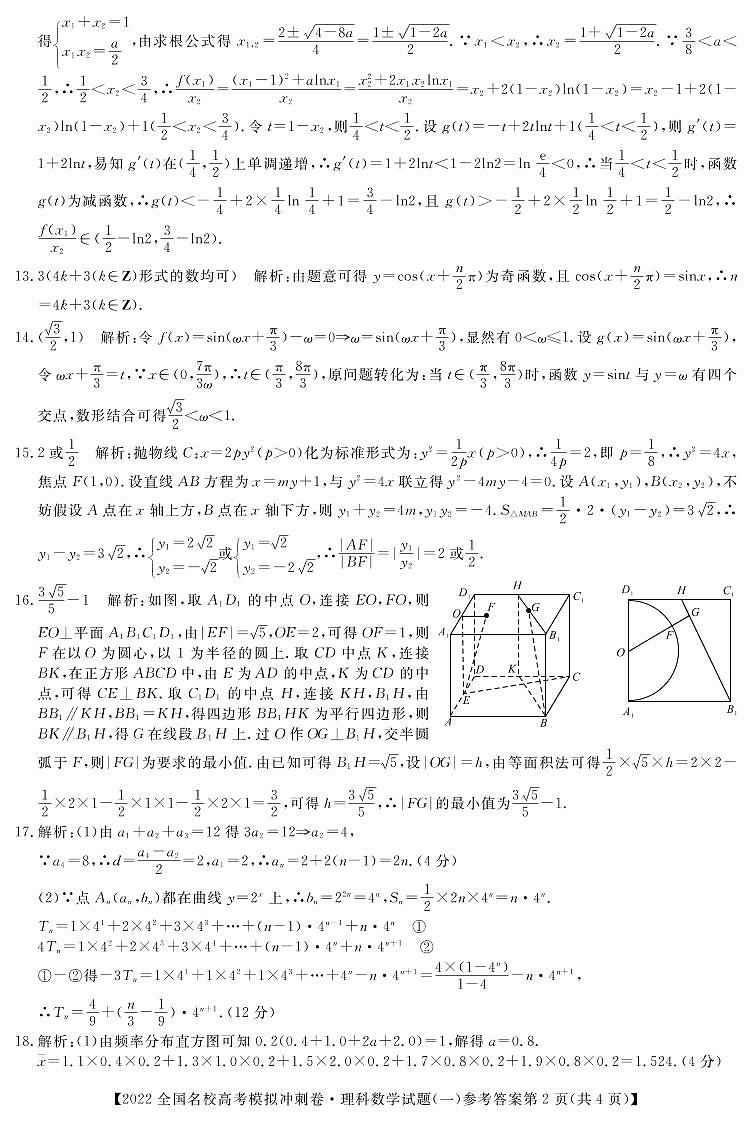 得{x₁+x₂=1, x₁x₂=a/2, 由求根公式得 x₁,₂=(2±√(4-8a))/4=(1±√(1-2a))/2. ∵x₁<x₂,∴x₂=(1+√(1-2a))/2. ∵3/8<a<
1/2,∴1/2<x₂<3/4,∴f(x₁)/x₂=((x₁-1)²+alnx₁)/x₂=(x₂²+2x₁x₂lnx₁)/x₂=x₂+2(1-x₂)ln(1-x₂)=x₂-1+2(1-
x₂)ln(1-x₂)+1(1/2<x₂<3/4).令t=1-x₂,则1/4<t<1/2.设g(t)=-t+2tlnt+1(1/4<t<1/2),则g′(t)=
1+2lnt,易知g′(t)在(1/4,1/2)上单调递增,∴g′(t)=1+2lnt<1-2ln2=ln e/4<0,∴当1/4<t<1/2时,函数
g(t)为减函数,∴g(t)<-1/4+2×1/4 ln 1/4+1=3/4-ln2,且g(t)>-1/2+2×1/2 ln 1/2+1=1/2-ln2,∴
f(x₁)/x₂∈(1/2-ln2,3/4-ln2).
13.3(4k+3(k∈Z)形式的数均可) 解析:由题意可得 y=cos(x+n/2 π)为奇函数,且 cos(x+n/2 π)=sinx,∴n
=4k+3(k∈Z).
14.(√3/2,1) 解析:令f(x)=sin(ωx+π/3)-ω=0⇒ω=sin(ωx+π/3),显然有0<ω≤1.设g(x)=sin(ωx+π/3),
令ωx+π/3=t,∵x∈(0,7π/3ω),∴t∈(π/3,8π/3),原问题转化为:当t∈(π/3,8π/3)时,函数y=sint与y=ω有四个
交点,数形结合可得√3/2<ω<1.
15.2或1/2 解析:抛物线C:x=2py²(p>0)化为标准形式为:y²=1/2p x(p>0),∴1/4p=2,即p=1/8,∴y²=4x,
焦点F(1,0).设直线AB方程为x=my+1,与y²=4x联立得y²-4my-4=0.设A(x₁,y₁),B(x₂,y₂),不
妨假设A点在x轴上方,B点在x轴下方,则y₁+y₂=4m,y₁y₂=-4.S△MAB=1/2·2·(y₁-y₂)=3√2,∴
y₁-y₂=3√2,∴{y₁=2√2, y₂=-√2 或{y₁=√2, y₂=-2√2,∴|AF|/|BF|=|y₁/y₂|=2或1/2.
16.3√5/5-1 解析:如图,取A₁D₁的中点O,连接EO,FO,则
EO⊥平面A₁B₁C₁D₁,由|EF|=√5,OE=2,可得OF=1,则
F在以O为圆心,以1为半径的圆上.取CD中点K,连接
BK,在正方形ABCD中,由E为AD的中点,K为CD的中
点,可得CE⊥BK.取C₁D₁的中点H,连接KH,B₁H,由
BB₁∥KH,BB₁=KH,得四边形BB₁HK为平行四边形,则
BK∥B₁H,得G在线段B₁H上.过O作OG⊥B₁H,交半圆
D₁ H C₁
O F G
A₁ B₁
D K C
E
A B
D₁ H C₁
G
F
O
A₁ B₁
弧于F,则|FG|为要求的最小值.由已知可得B₁H=√5,设|OG|=h,由等面积法可得1/2×√5×h=2×2-
1/2×2×1-1/2×1×1-1/2×2×1=3/2,可得h=3√5/5,∴|FG|的最小值为3√5/5-1.
17.解析:(1)由a₁+a₂+a₃=12得3a₂=12⇒a₂=4,
∵a₄=8,∴d=(a₄-a₂)/2=2,a₁=2,∴aₙ=2+2(n-1)=2n.(4分)
(2)∵点Aₙ(aₙ,bₙ)都在曲线y=2ˣ上,∴bₙ=2²ⁿ=4ⁿ,Sₙ=1/2×2n×4ⁿ=n·4ⁿ.
Tₙ=1×4¹+2×4²+3×4³+⋯+(n-1)·4ⁿ⁻¹+n·4ⁿ ①
4Tₙ=1×4²+2×4³+3×4⁴+⋯+(n-1)·4ⁿ+n·4ⁿ⁺¹ ②
①-②得-3Tₙ=1×4¹+1×4²+1×4³+⋯+4ⁿ-n·4ⁿ⁺¹=4×(1-4ⁿ)/(1-4)-n·4ⁿ⁺¹,
∴Tₙ=4/9+(n/3-1/9)·4ⁿ⁺¹.(12分)
18.解析:(1)由频率分布直方图可知0.2(0.4+1.0+2a+2.0)=1,解得a=0.8.
x̄=1.1×0.4×0.2+1.3×1.0×0.2+1.5×2.0×0.2+1.7×0.8×0.2+1.9×0.8×0.2=1.524.(4分)
【2022全国名校高考模拟冲刺卷·理科数学试题(一)参考答案第2页(共4页)】